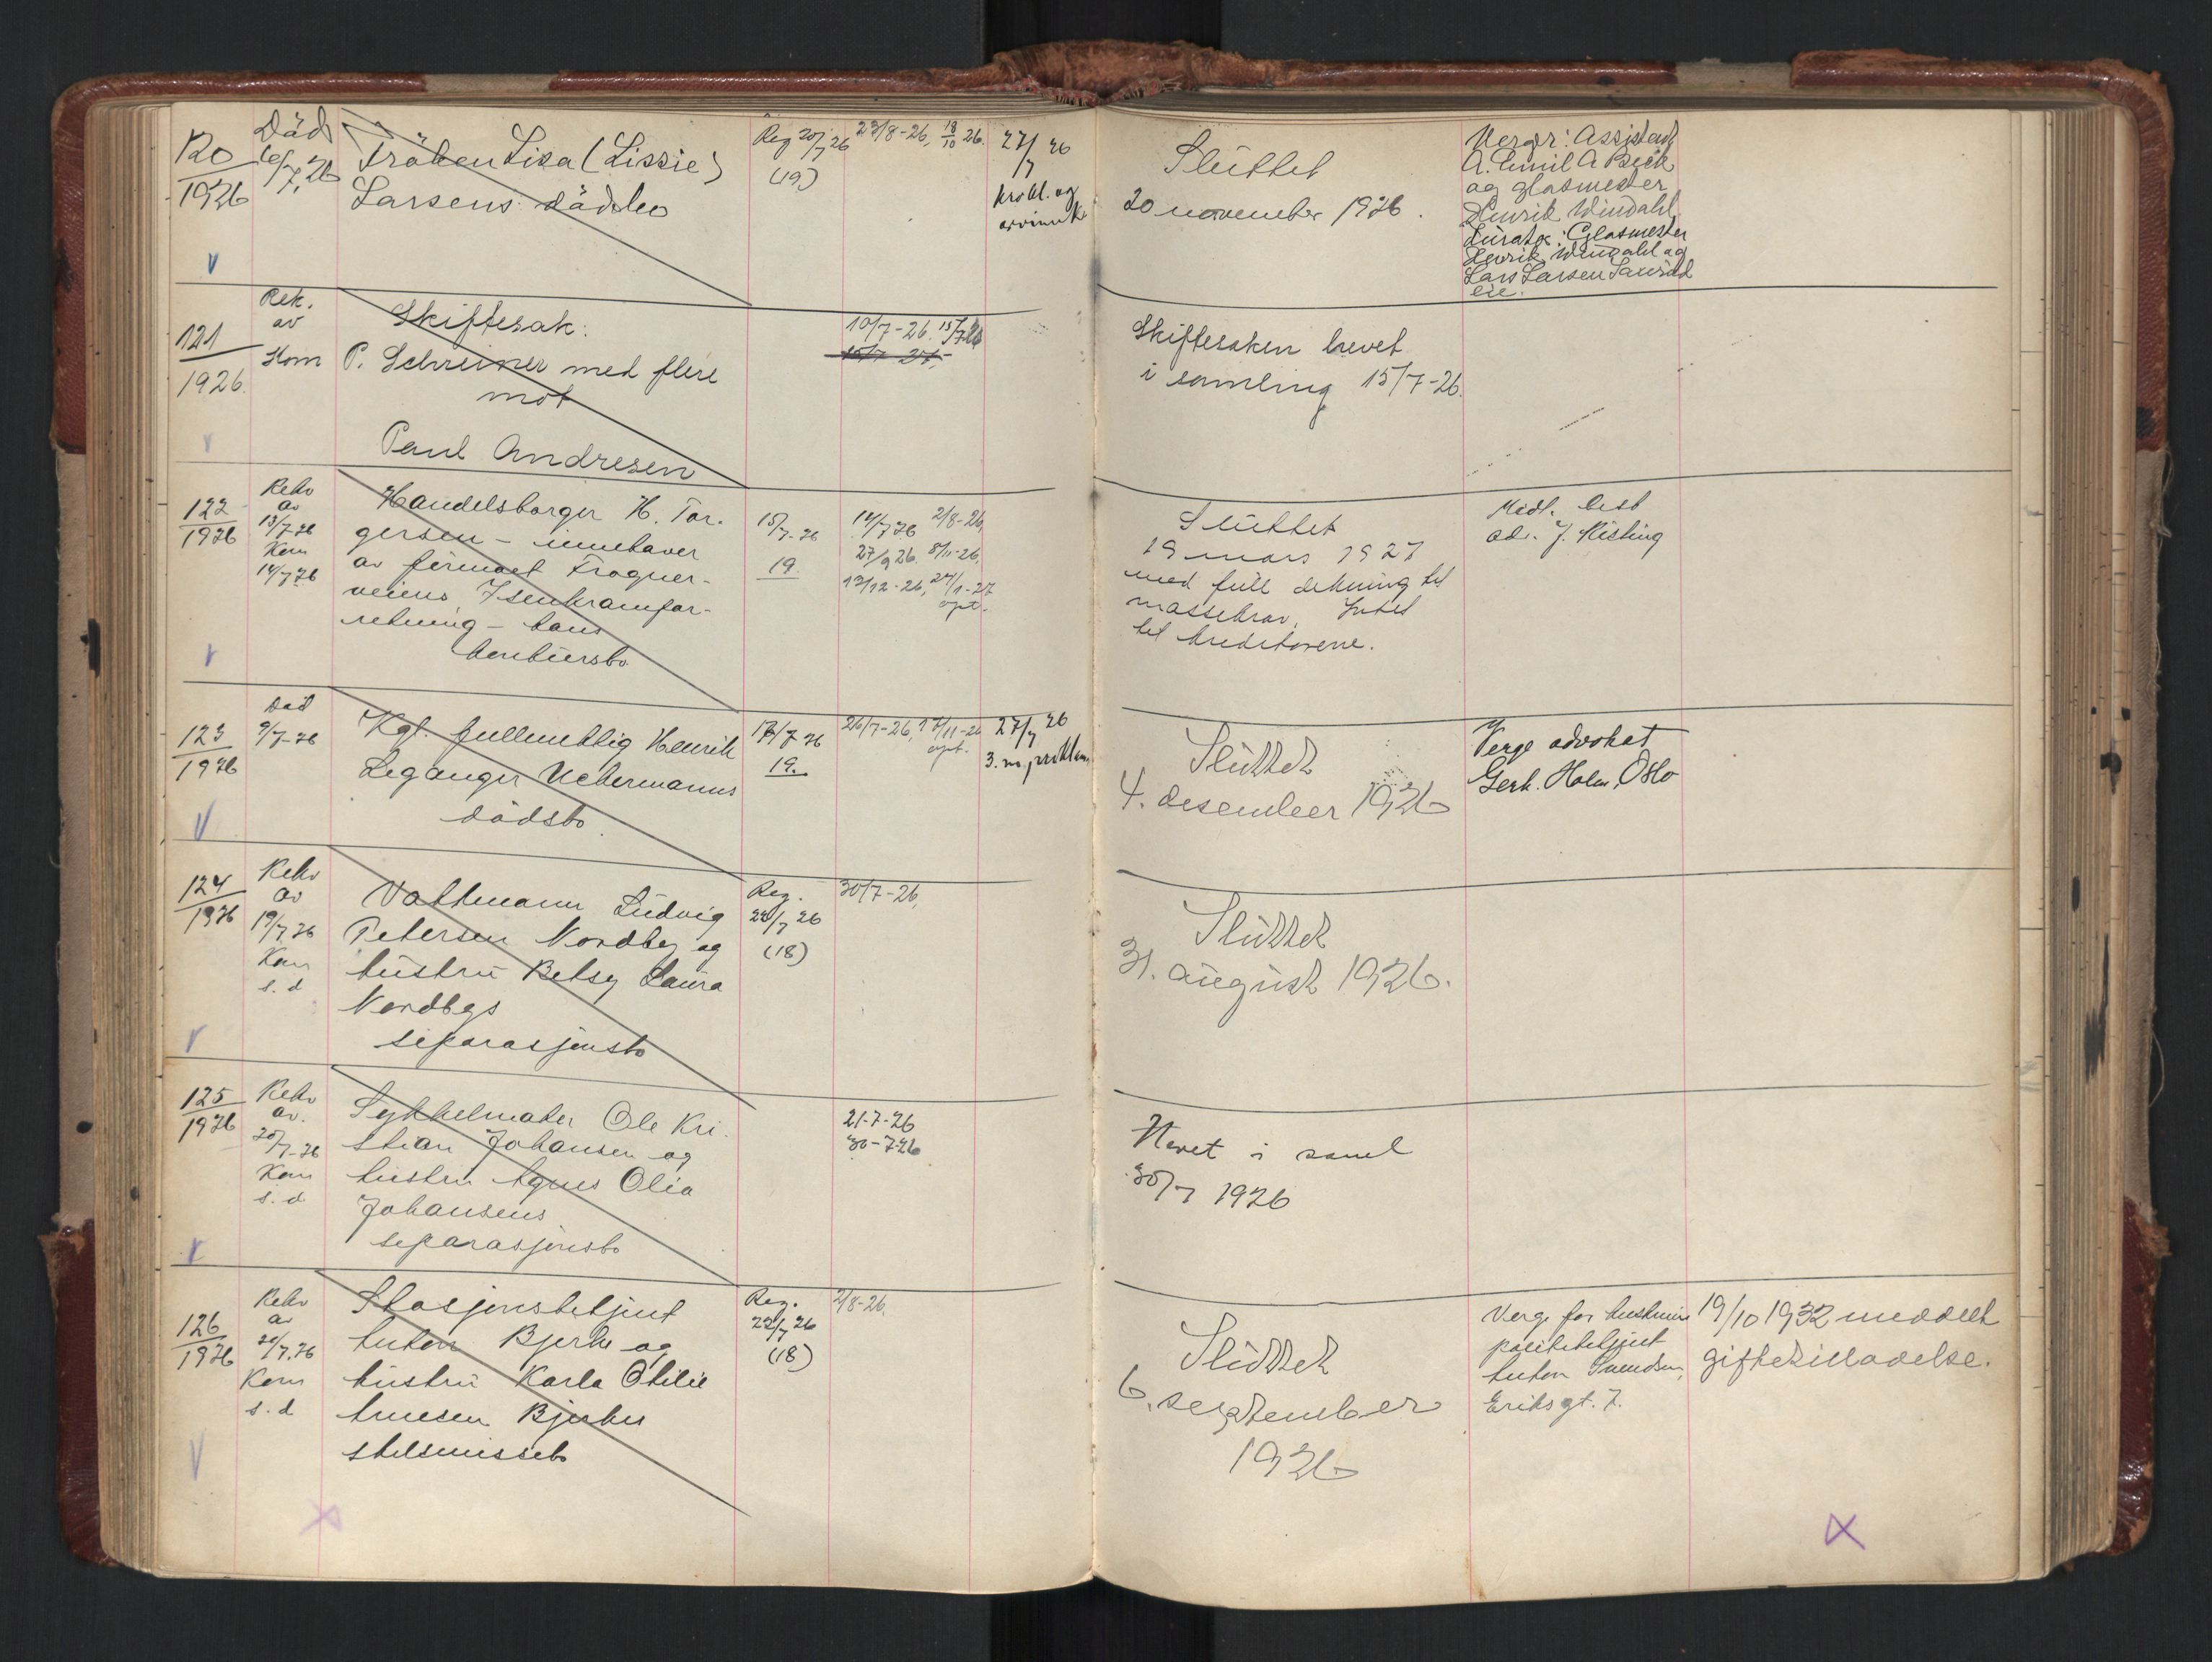 120
1926
Död
16/7.26
Fröken Lisa (Lissie)
Larsens dödsbo
Reg 20/7 26
(19)
23/8-26, 18/10 26.
27/7 26
prokl. og
Sluttet
20 november 1926.
Verger: Assistent
A. Emil A
og glasmester
Henrik Windahl.
Kurator: Glasmester
Henrik Windahl og
Lars Larsen
eie.
121
1926.
Rek.
av
Kom
Skiftesak:
P. Schreiner med flere
mot
Paul Andresen
10/7-26. 15/7 26
Skiftesaken hevet
i samling 15/7-26.
122
1926
Rekv
av
13/7-26
Kom
14/7 26
Handelsborger H. Tor-
gersen – innehaver
av firmaet Frogner-
veiens Isenkramfor-
retning – hans
konkursbo
15/7-26
19
14/7 26 2/8-26,
27/9 26. 8/11-26,
13/12-26, 24/1-27
opt.
Sluttet
19 mars 1927
med full dekning til
massekrav. Intet
til kreditorene.
Midl. best
adv. J. Kisting
123
1926
Död
9/7-26
Kgl. fullmektig Henrik
Leganger Uchermanns
dödsbo.
17/7 26
19.
26/7-26, 17/11-26
opt.
27/7 26
3. m. proklam
Sluttet
4. desember 1926
Verge advokat
Gerh. Holm, Oslo
124
1926
Rekv
av
19/7.26
Kom
s. d
Vaktmann Ludvig
Petersen Nordby og
hustru Betsy Laura
Nordbys
separasjonsbo
Reg.
22/7 26
(18)
30/7-26,
Sluttet
31. august 1926.
125
1926
Rekv
av.
20/7-26
Kom
s. d
Sykkelmaker Ole Kri-
stian Johansen og
hustru Agnes Olia
Johansens
separasjonsbo
21-7-26
30-7-26
Hevet i saml
30/7 1926
126
1926
Rekv
av
21/7.26
Kom
s. d
Stasjonsbetjent
Anton Bjerke og
hustru Karla Otilie
Arnesen Bjerkes
skilsmissebo
Reg.
22/7 26
(18)
2/8-26.
Sluttet
6. september
1926
Verge for hustruen
politibetjent
Anton Svendsen,
Eriksgt. 7.
19/10 1932 meddelt
giftetilladelse.